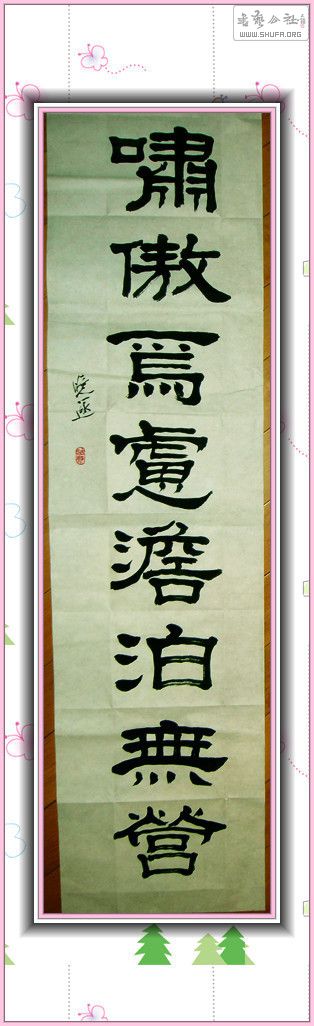 書藝公社
WWW.SHUFA.ORG
嘯傲爲慮澹泊無營